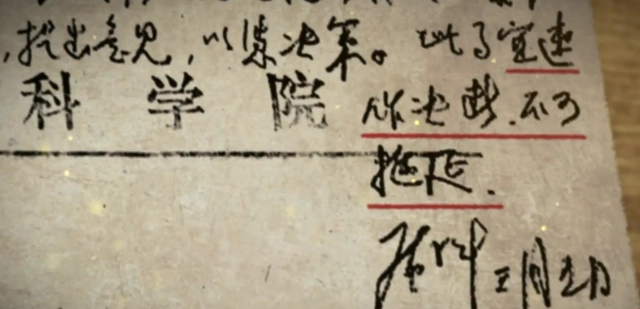 ,提出意见,以凭决策。此事宜速
科学院
作决断.不可
拖延.
三月五日